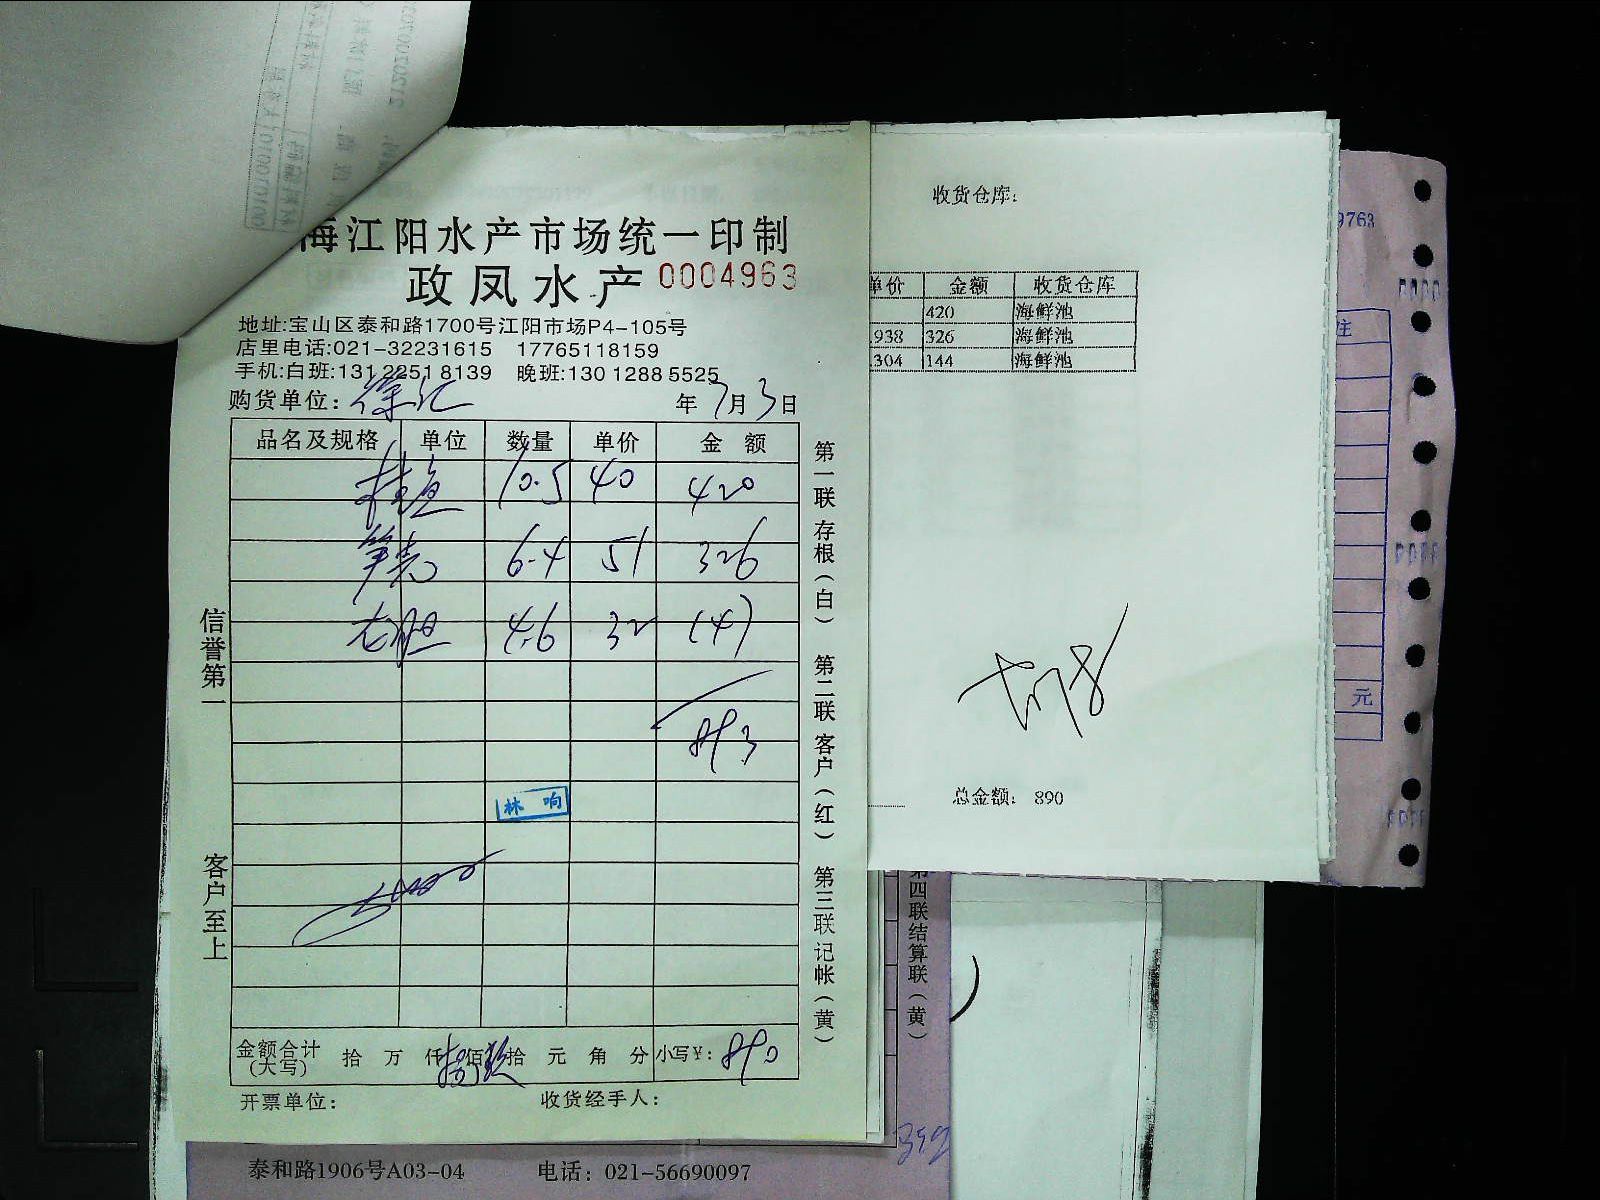 海江阳水产市场统一印制
政凤水产 0004963
地址:宝山区泰和路1700号江阳市场P4-105号
店里电话:021-32231615 17765118159
手机:白班:131 2251 8139 晚班:130 1288 5525
购货单位: 徐汇 年 7月 3日
品名及规格 单位 数量 单价 金 额
桂鱼 10.5 40 420
笋壳 6.4 51 326
4.6 32 147
893
林 响
金额合计(大写) 拾 万 仟 捌佰 玖拾 元 角 分 小写¥: 890
开票单位: 收货经手人:
信誉第一 客户至上
第一联 存根(白) 第二联 客户(红) 第三联 记帐(黄)
收货仓库:
单价 金额 收货仓库
420 海鲜池
.938 326 海鲜池
.304 144 海鲜池
总金额: 890
9763
注
元
第四联结算联(黄)
泰和路1906号A03-04 电话: 021-56690097